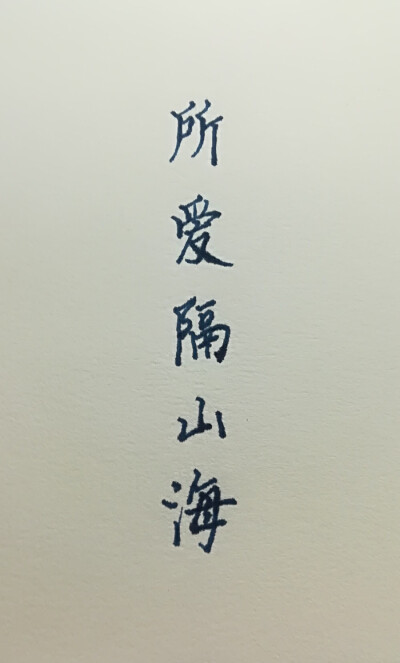 所爱隔山海